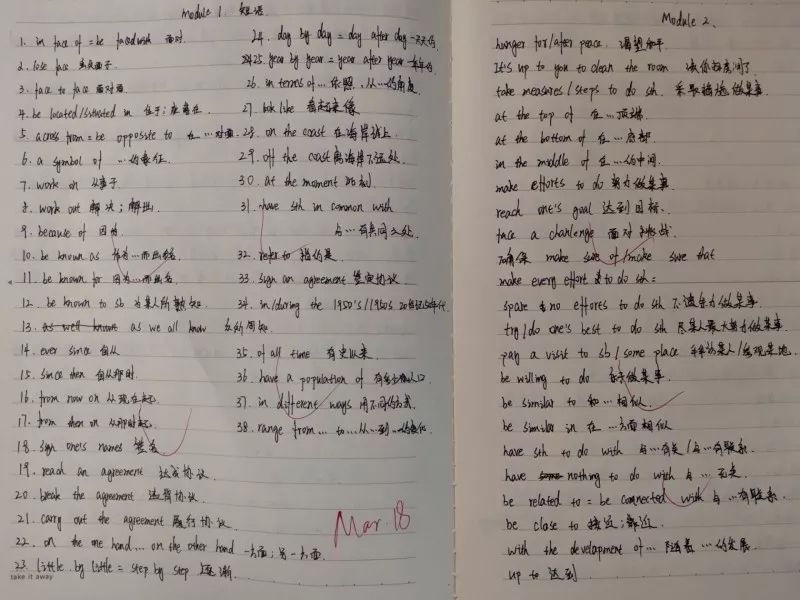 Module 1. 短语
1. in face of = be faced with 面对
2. lose face 丢失面子
3. face to face 面对面
4. be located/situated in 位于;座落在
5. across from = be opposite to 在…对面
6. a symbol of …的象征
7. work on 从事于
8. work out 解决;解出
9. because of 因为
10. be known as 作为…而出名
11. be known for 因为…而出名
12. be known to sb 为某人所熟知
13. as well known as we all know 众所周知
14. ever since 自从
15. since then 自从那时
16. from now on 从现在起
17. from then on 从那时起
18. sign one's names 签名
19. reach an agreement 达成协议
20. break the agreement 违背协议
21. carry out the agreement 履行协议
22. on the one hand... on the other hand 一方面;另一方面
23. little by little = step by step 逐渐
take it away
24. day by day = day after day 一天天的
25. year by year = year after year 一年年的
26. in terms of … 依照,从…的角度
27. look like 看起来像
28. on the coast 在海岸线上
29. off the coast 离海岸不远处
30. at the moment 此刻
31. have sth in common with
与…有共同之处
32. refer to 指的是
33. sign an agreement 签定协议
34. in/during the 1950's/1950s 20世纪50年代
35. of all time 有史以来
36. have a population of 有多少人口
37. in different ways 用不同的方式
38. range from … to … 从…到…的变化
Mar. 18
Module 2.
hunger for/after peace. 渴望和平
It's up to you to clean the room 该你打扫房间了
take measures/steps to do sth 采取措施做某事
at the top of 在…顶端
at the bottom of 在…底部
in the middle of 在…的中间
make efforts to do 努力做某事
reach one's goal 达到目标
face a chanlenge 面对挑战
确保 make sure of/make sure that
make every effort to do sth =
spare no efforts to do sth 不遗余力做某事
try/do one's best to do sth 尽某人最大努力做某事
pay a visit to sb/some place 拜访某人/参观某地
be willing to do 乐于做某事
be similar to 和…相似
be similar in 在…方面相似
have sth to do with 与…有关/与…有联系
have nothing to do with 与…无关
be related to = be connected with 与…有联系
be close to 接近;靠近
with the development of … 随着…的发展
up to 达到